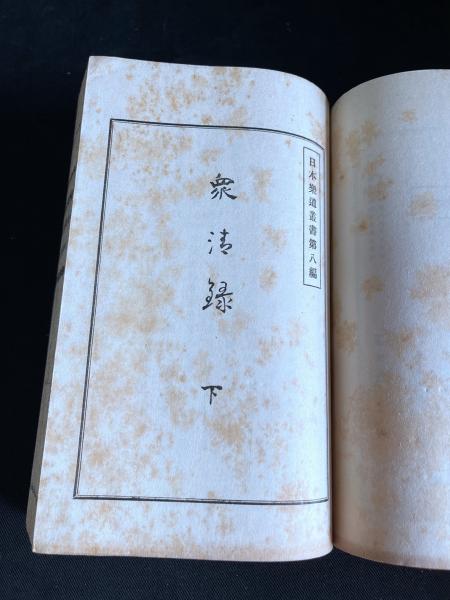 日本樂道叢書第八編
衆清録
下